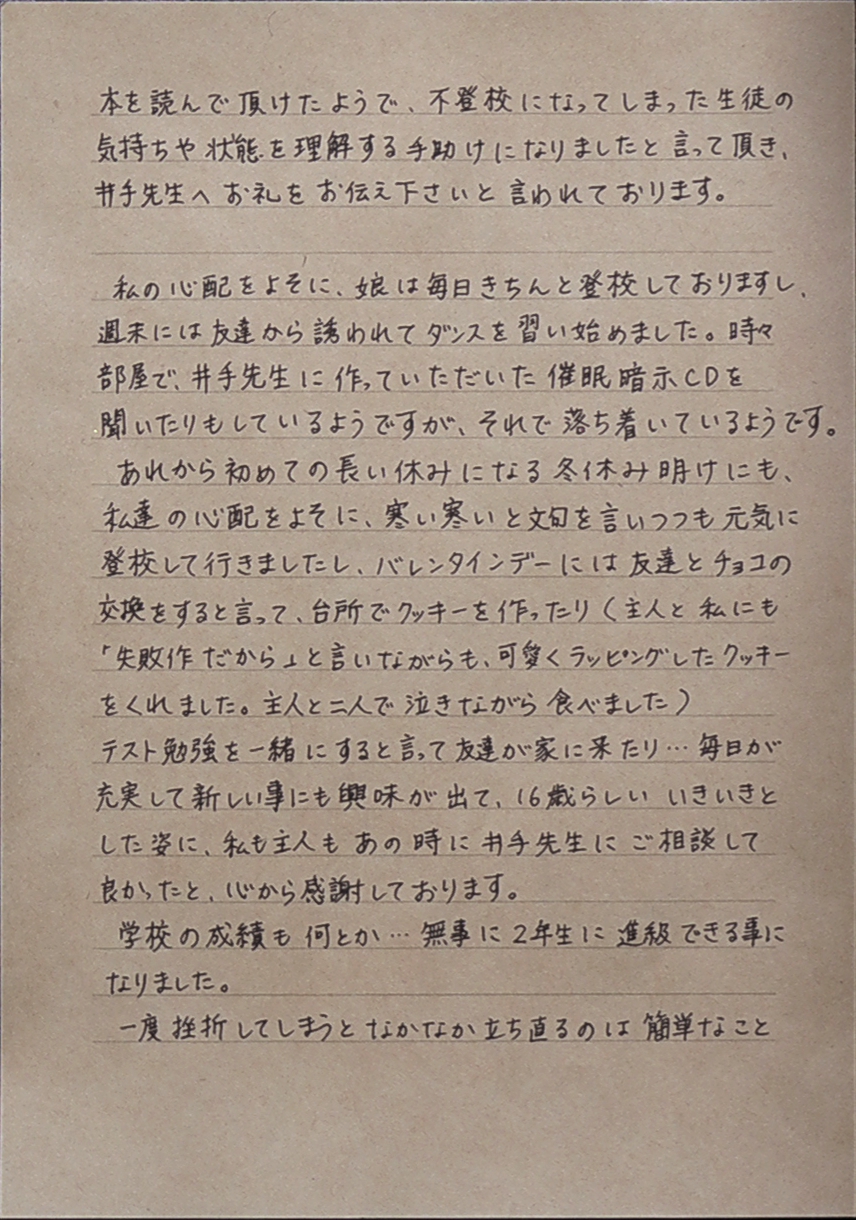 本を読んで頂けたようで、不登校になってしまった生徒の
気持ちや状態を理解する手助けになりましたと言って頂き、
井手先生へお礼をお伝え下さいと言われております。
私の心配をよそに、娘は毎日きちんと登校しておりますし、
週末には友達から誘われてダンスを習い始めました。時々
部屋で、井手先生に作っていただいた催眠暗示CDを
聞いたりもしているようですが、それで落ち着いているようです。
あれから初めての長い休みになる冬休み明けにも、
私達の心配をよそに、寒い寒いと文句を言いつつも元気に
登校して行きましたし、バレンタインデーには友達とチョコの
交換をすると言って、台所でクッキーを作ったり(主人と私にも
「失敗作だから」と言いながらも、可愛くラッピングしたクッキー
をくれました。主人と二人で泣きながら食べました)
テスト勉強を一緒にすると言って友達が家に来たり…毎日が
充実して新しい事にも興味が出て、16歳らしいいきいきと
した姿に、私も主人もあの時に井手先生にご相談して
良かったと、心から感謝しております。
学校の成績も何とか…無事に2年生に進級できる事に
なりました。
一度挫折してしまうとなかなか立ち直るのは簡単なこと